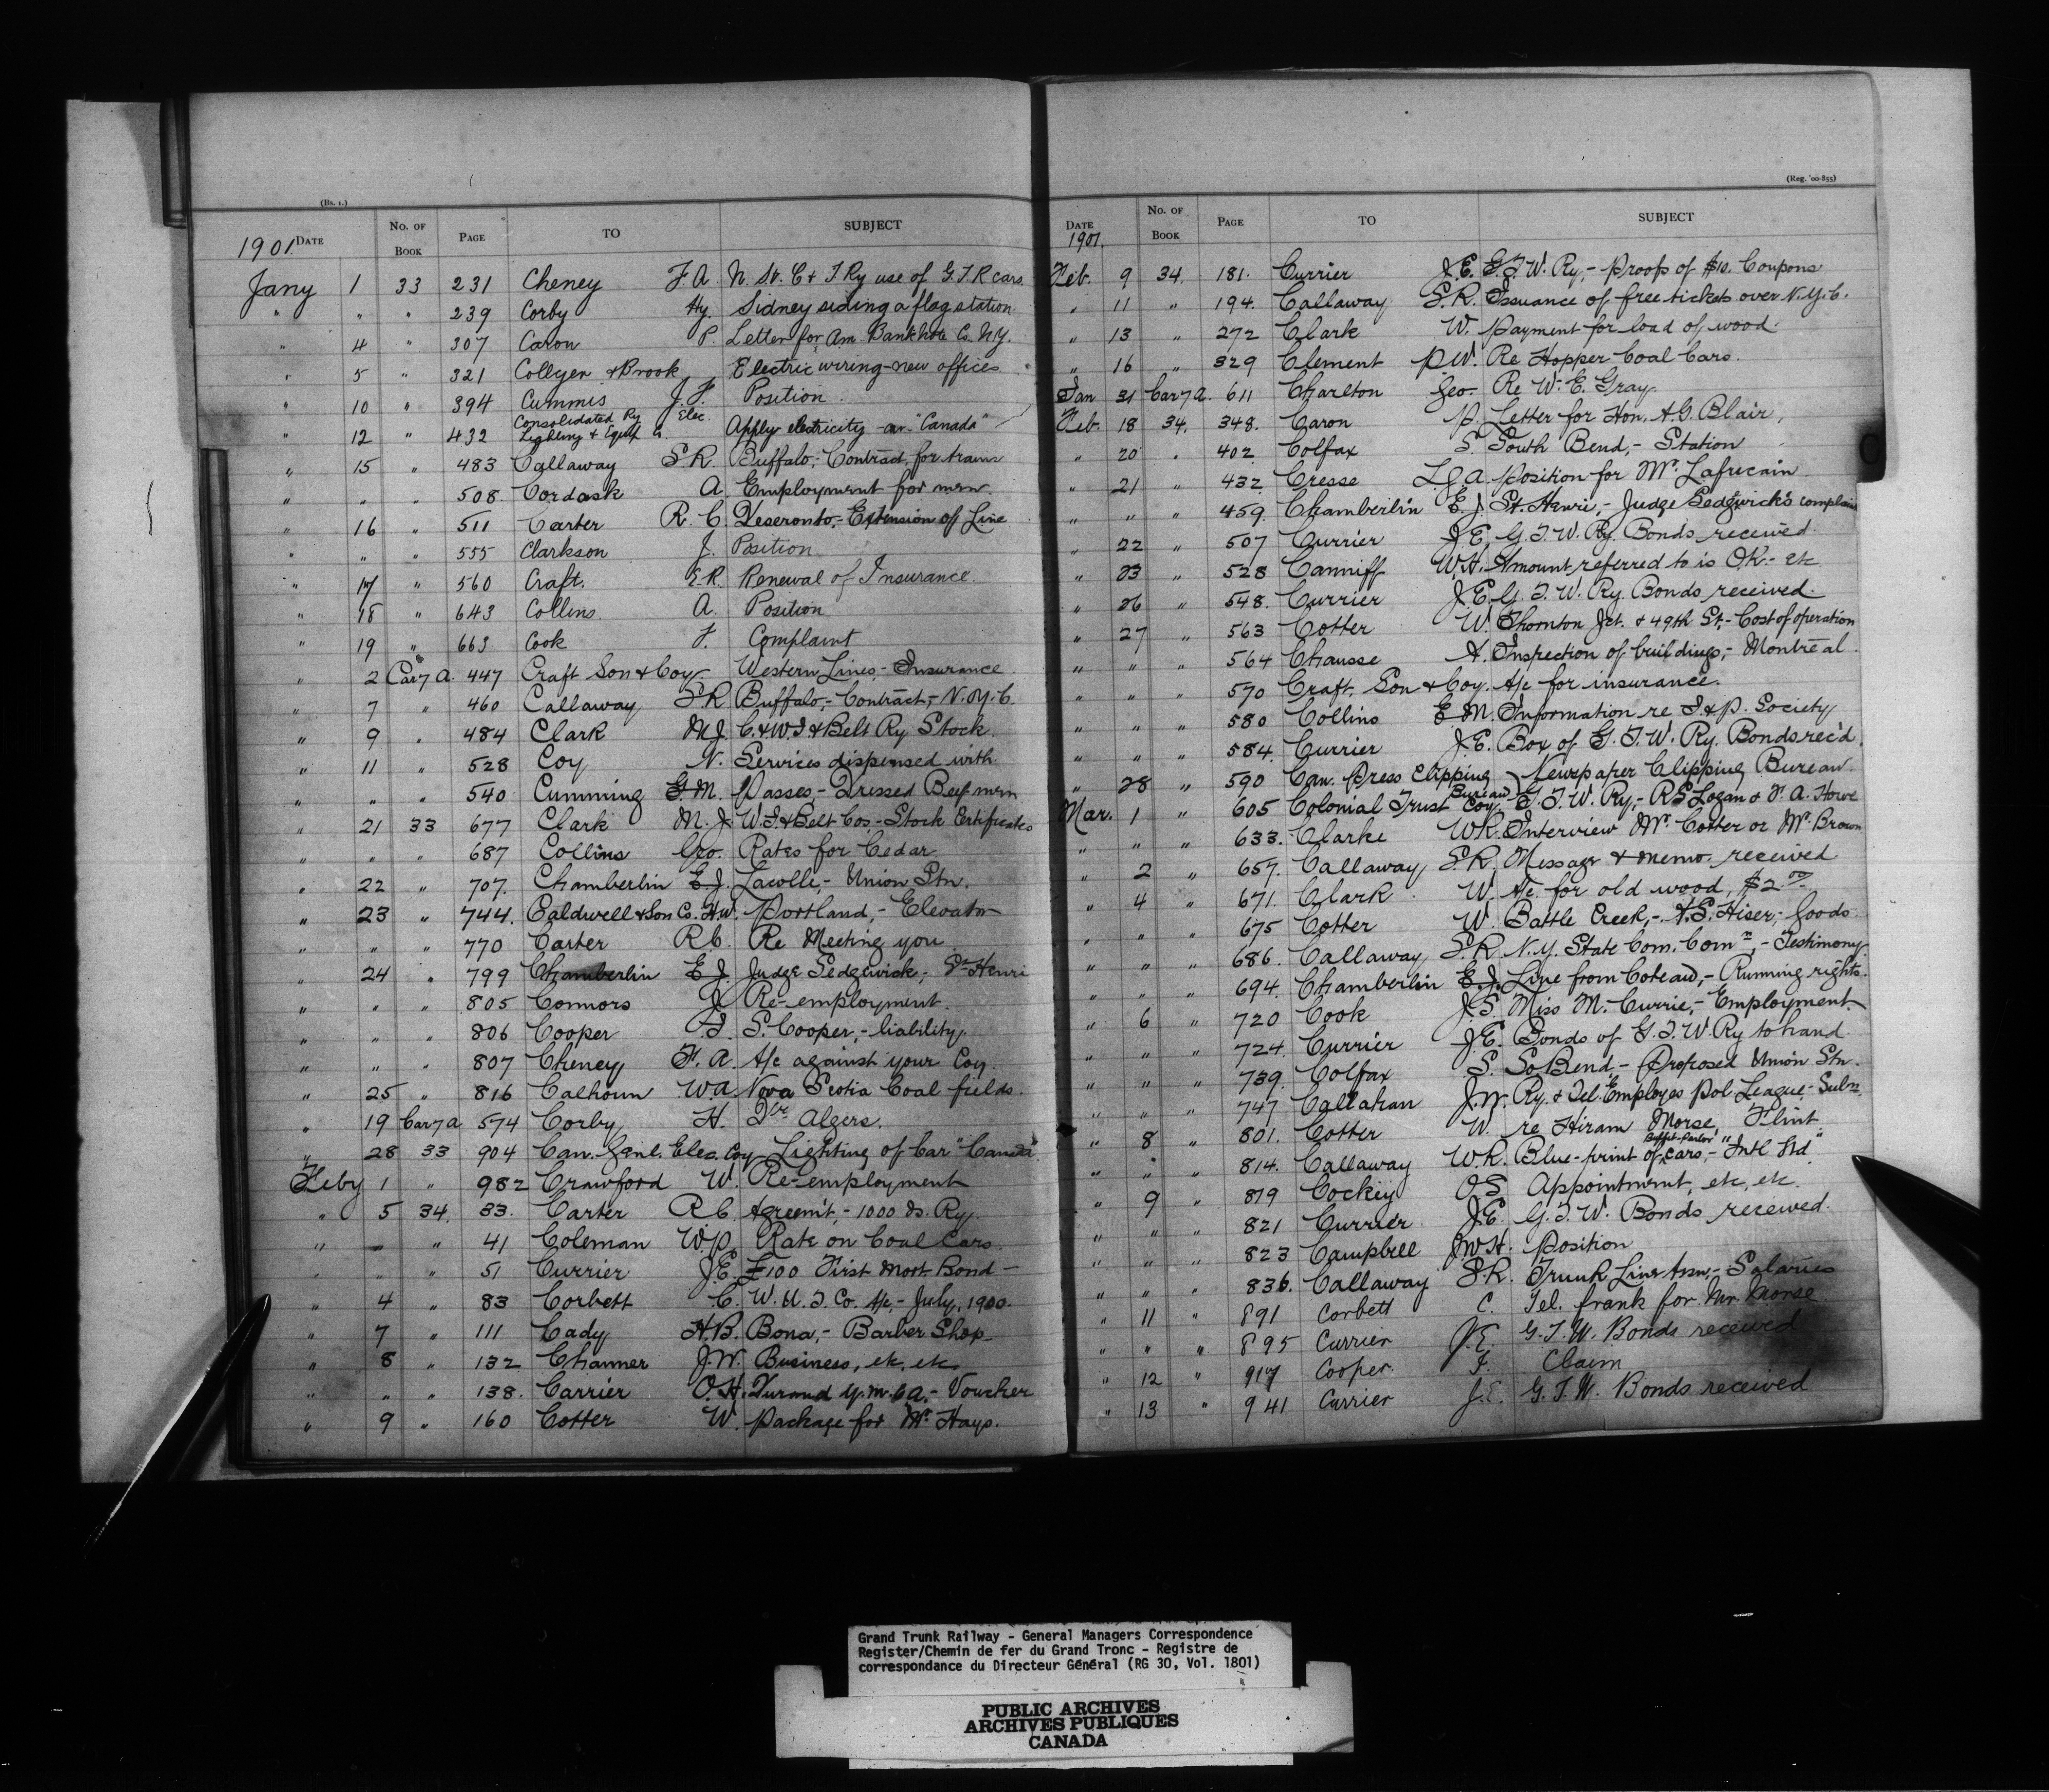 (Bs. 1.)
1901 DATE No. OF BOOK PAGE TO SUBJECT
Jany 1 33 231 Cheney F. A. N. St. C & T. Ry use of G.T.R cars.
" " " 239 Corby Hy. Sidney siding a flag station
" 4 " 307 Caron P. Letter for Am. Banknote Co. N.Y.
" 5 " 321 Collyer & Brock Electric wiring - new offices
" 10 " 394 Cummis J. F. Position
" 12 " 432 Consolidated Ry Elec. Lighting & Equip Co. Apply electricity - car - "Canada"
" 15 " 483 Callaway S.R. Buffalo, - Contract for trains
" " " 508 Cordask A. Employment for men.
" 16 " 511 Carter R. C. Deseronto, - Extension of Line
" " " 555 Clarkson J. Position
" 17 " 560 Craft. E.R. Renewal of Insurance.
" 18 " 643 Collins A. Position
" 19 " 663 Cook F. Complaint
" 2 Car 7 A. 447 Craft Son & Coy. Western Lines, - Insurance
" 7 " 460 Callaway S.R Buffalo, - Contract, - N.Y.C.
" 9 " 484 Clark M.J. C. & W.I & Belt Ry Stock.
" 11 " 528 Coy N. Services dispensed with.
" " " 540 Cumming G.M. Passes, - Dressed Beef men
" 21 33 677 Clark M.J. W.I. & Belt Cos - Stock Certificates
" " " 687 Collins Geo. Rates for Cedar
" 22 " 707. Chamberlin E.J. Lacolle, - Union Stn.
" 23 " 744. Caldwell & Son Co. H.W. Portland, - Elevator
" " " 770 Carter R.C. Re Meeting you
" 24 " 799 Chamberlin E.J. Judge Sedgewick, - St Henri
" " " 805 Connors J. Re-employment.
" " " 806 Cooper T. S. Cooper, - liability.
" " " 807 Cheney F. A. A/c against your Coy.
" 25 " 816 Calhoun W.A. Nova Scotia Coal fields.
" 19 Car 7 a 574 Corby H. Dr. Algers.
" 28 33 904 Can. Genl. Elec. Coy Lighting of Car "Canada"
Feby 1 " 982 Crawford W. Re-employment
" 5 34. 33. Carter R.C. Agreem't, - 1000 Is. Ry.
" " " 41 Coleman W.P. Rate on Coal Cars.
" " " 51 Currier J.E. £100 First Mort. Bond -
" 4 " 83 Corbett C. W.U.T. Co. A/c, - July, 1900.
" 7 " 111 Cady H.B. Bona, - Barber Shop
" 8 " 132 Channer J.W. Business, etc, etc.
" " " 138. Carrier O.H. Durand Y.M.C.A. - Voucher
" 9 " 160 Cotter W. Package for Mr. Hays.
(Reg. '00-855)
DATE 1901. No. OF BOOK PAGE TO SUBJECT
Feb. 9 34. 181. Currier J.E. G.T.W. Ry, - Proofs of $10. Coupons
" 11 " 194. Callaway S.R. Issuance of free tickets over N.Y.C.
" 13 " 272 Clark W. Payment for load of wood.
" 16 " 329 Clement P.W. Re Hopper Coal Cars.
Jan 31 Car 7 a. 611 Charlton Geo. Re W. E. Gray.
Feb. 18 34. 348. Caron P. Letter for Hon. A.G. Blair,
" 20 " 402. Colfax S. South Bend, - Station
" 21 " 432 Cresse L.G.A. Position for Mr. Lafricain
" " " 459. Chamberlin E.J. St. Henri, - Judge Sedgwick's complaint
" 22 " 507 Currier J.E. G.T.W. Ry. Bonds received
" 23 " 528 Canniff W.H. Amount referred to is O.K. - etc
" 26 " 548. Currier J.E. G.T.W. Ry. Bonds received.
" 27 " 563 Cotter W. Thornton Jct. & 49th St. - Cost of operation
" " " 564 Chausse A. Inspection of buildings, - Montreal.
" " " 570 Craft, Son & Coy. A/c for insurance.
" " " 580 Collins E.M. Information re I & P. Society
" " " 584. Currier J.E. Box of G.T.W. Ry. Bonds rec'd.
" 28 " 590 Can. Press Clipping Bureau } Newspaper Clipping Bureau.
Mar. 1 " 605 Colonial Trust Coy. G.T.W. Ry, - R S Logan & F. A. Howe
" " " 633. Clarke W.R. Interview Mr. Cotter or Mr. Brown
" 2 " 657. Callaway, S.R. Message & memo. received
" 4 " 671. Clark W. A/c for old wood, $2.00
" " " 675 Cotter W. Battle Creek, - A.S. Hiser, - Goods.
" " " 686. Callaway, S.R. N.Y. State Com. Comn, - Testimony.
" " " 694. Chamberlin E.J. Line from Coteau, - Running rights.
" 6 " 720 Cook J.S. Miss M. Currie, - Employment.
" " " 724. Currier J.E. Bonds of G.T.W. Ry to hand.
" " " 739. Colfax S. So Bend, - Proposed Union Stn.
" " " 747 Callahan J.W. Ry. & Tel. Employes Pol League, - Subn.
" 8 " 801. Cotter W. re Hiram Morse, Flint
" " " 814. Callaway W.R. Blue-print of Buffet-Parlor cars, - "Intl Ltd"
" 9 " 819 Cockey O.S. Appointment, etc, etc.
" " " 821 Currier J.E. G.T.W. Bonds received.
" " " 823 Campbell J.W.H. Position
" " " 836. Callaway S.R. Trunk Line Assn, - Salaries
" 11 " 891 Corbett C. Tel. frank for Mr. Morse
" " " 895 Currier J.E. G.T.W. Bonds received
" 12 " 917 Cooper. F. Claim
" 13 " 941 Currier J.E. G.T.W. Bonds received
Grand Trunk Railway - General Managers Correspondence
Register/Chemin de fer du Grand Tronc - Registre de
correspondance du Directeur Général (RG 30, Vol. 1801)
PUBLIC ARCHIVES
ARCHIVES PUBLIQUES
CANADA